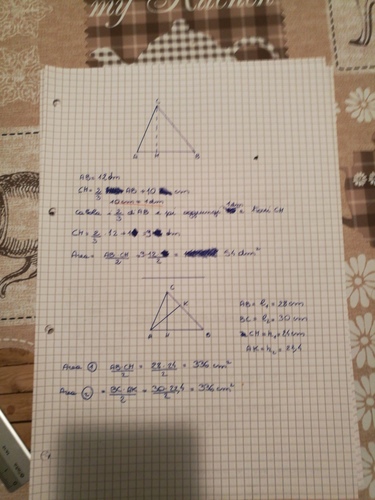 my Kitchen
C
A H B
AB = 12 dm
CH = 2/3 AB + 10 cm
10 cm = 1 dm
2/3 di AB e poi aggiungi 1 dm =
CH = 2/3 · 12 + 1 = 9 dm
Area = AB·CH/2 = 9·12/2 = 54 dm²
C
K
A H B
AB = b₁ = 28 cm
BC = b₂ = 30 cm
CH = h₁ = 24 cm
AK = h₂ = 22,4
Area ① AB·CH/2 = 28·24/2 = 336 cm²
Area ② = BC·AK/2 = 30·22,4/2 = 336 cm²